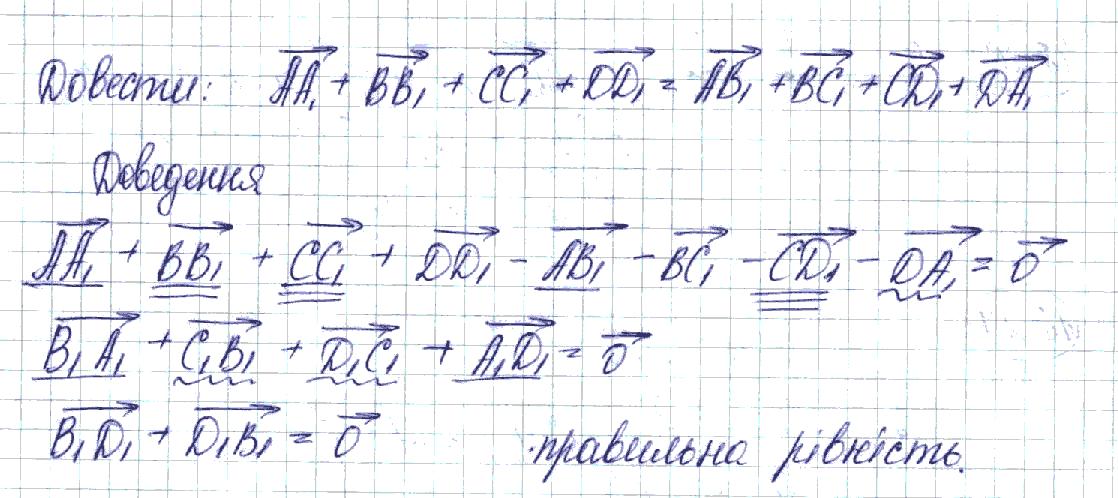 Довести: AA₁ + BB₁ + CC₁ + DD₁ = AB₁ + BC₁ + CD₁ + DA₁
Доведення
AA₁ + BB₁ + CC₁ + DD₁ - AB₁ - BC₁ - CD₁ - DA₁ = 0
B₁A₁ + C₁B₁ + D₁C₁ + A₁D₁ = 0
B₁D₁ + D₁B₁ = 0 правильна рівність.